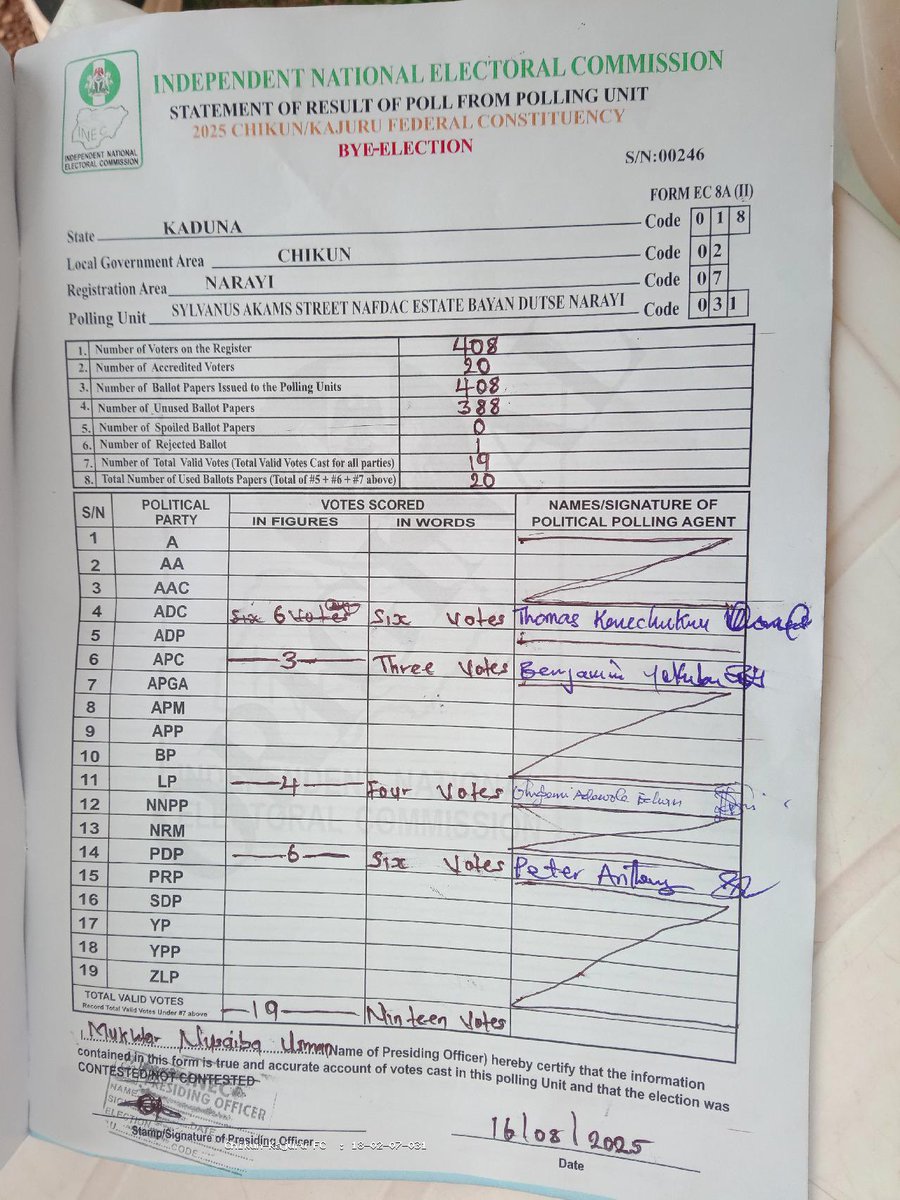 INDEPENDENT NATIONAL ELECTORAL COMMISSION
STATEMENT OF RESULT OF POLL FROM POLLING UNIT
2025 CHIKUN/KAJURU FEDERAL CONSTITUENCY
BYE-ELECTION
INEC
INDEPENDENT NATIONAL
ELECTORAL COMMISSION
S/N:00246
FORM EC 8A (II)
State KADUNA Code 0 1 8
Local Government Area CHIKUN Code 0 2
Registration Area NARAYI Code 0 7
Polling Unit SYLVANUS AKAMS STREET NAFDAC ESTATE BAYAN DUTSE NARAYI Code 0 3 1
1. Number of Voters on the Register 408
2. Number of Accredited Voters 20
3. Number of Ballot Papers Issued to the Polling Units 408
4. Number of Unused Ballot Papers 388
5. Number of Spoiled Ballot Papers 0
6. Number of Rejected Ballot 1
7. Number of Total Valid Votes (Total Valid Votes Cast for all parties) 19
8. Total Number of Used Ballots Papers (Total of #5 + #6 + #7 above) 20
S/N POLITICAL PARTY VOTES SCORED NAMES/SIGNATURE OF POLITICAL POLLING AGENT
IN FIGURES IN WORDS
1 A
2 AA
3 AAC
4 ADC six 6 votes six votes Thomas
5 ADP
6 APC 3 Three votes Benjamin
7 APGA
8 APM
9 APP
10 BP
11 LP 4 Four votes
12 NNPP
13 NRM
14 PDP 6 six votes Peter
15 PRP
16 SDP
17 YP
18 YPP
19 ZLP
TOTAL VALID VOTES 19 Ninteen votes
Record Total Valid Votes Under #7 above
I, Usman (Name of Presiding Officer) hereby certify that the information
contained in this form is true and accurate account of votes cast in this polling Unit and that the election was
CONTESTED/NOT CONTESTED
PRESIDING OFFICER
Stamp/Signature of Presiding Officer
16/08/2025
Date
: 18-02-07-031